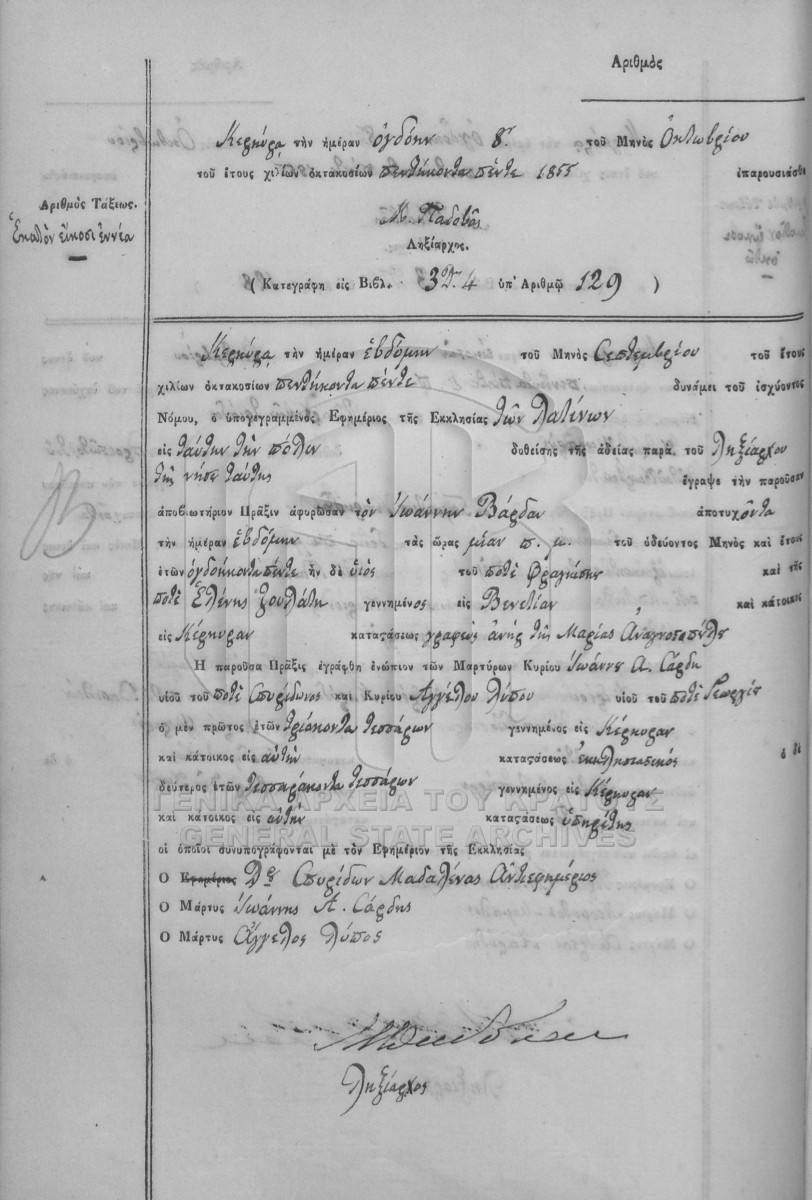 Ἀριθμὸς
Κερκύρα τὴν ἡμέραν ὀγδόην 8ην τοῦ Μηνὸς Ὀκτωβρίου
τοῦ ἔτους χιλίων ὀκτακοσίων πεντήκοντα πέντε 1855 ἐπαρουσιάσθη
Ἀριθμὸς Τάξεως.
Ἑκατὸν εἴκοσι ἐννέα
Μ. Παδοβᾶς
Ληξίαρχος.
( Κατεγράφη εἰς Βιβλ. 3 4 ὑπ' Ἀριθμῷ 129 )
Κερκύρα τὴν ἡμέραν ἑβδόμην τοῦ Μηνὸς Σεπτεμβρίου τοῦ ἔτους
χιλίων ὀκτακοσίων πεντήκοντα πέντε δυνάμει τοῦ ἰσχύοντος
Νόμου, ὁ ὑπογεγραμμένος Ἐφημέριος τῆς Ἐκκλησίας τῶν Λατίνων
εἰς ταύτην τὴν πόλιν δοθείσης τῆς ἀδείας παρὰ τοῦ Ληξιάρχου
τῆς νήσου ταύτης ἔγραψε τὴν παροῦσαν
ἀποβιωτήριον Πρᾶξιν ἀφορῶσαν τὸν Ἰωάννην Βάρδαν ἀποτυχόντα
τὴν ἡμέραν ἑβδόμην τὰς ὥρας μίαν π. μ. τοῦ ὁδεύοντος Μηνὸς καὶ ἔτους
ἐτῶν ὀγδοήκοντα πέντε ἦν δὲ υἱὸς τοῦ ποτὲ Φραγκίσκου καὶ τῆς
ποτὲ Ἑλένης Ζουλάτη γεννημένος εἰς Βενετίαν καὶ κάτοικος
εἰς Κέρκυραν καταστάσεως γραφεὺς ἀνὴρ τῆς Μαρίας Ἀναγνοστοπούλου
Ἡ παροῦσα Πρᾶξις ἐγράφη ἐνώπιον τῶν Μαρτύρων Κυρίου Ἰωάννου Α. Σάρδη
υἱοῦ τοῦ ποτὲ Σπυρίδωνος καὶ Κυρίου Ἀγγέλου Λύπου υἱοῦ τοῦ ποτὲ Γεωργίου
ὁ μὲν πρῶτος ἐτῶν τριάκοντα τεσσάρων γεννημένος εἰς Κέρκυραν
καὶ κάτοικος εἰς αὐτὴν καταστάσεως ἐκκλησιαστικὸς ὁ δὲ
δεύτερος ἐτῶν τεσσαράκοντα τεσσάρων γεννημένος εἰς Κέρκυραν
ΓΕΝΙΚΑ ΑΡΧΕΙΑ ΤΟΥ ΚΡΑΤΟΥΣ
καὶ κάτοικος εἰς αὐτὴν καταστάσεως ὑπηρέτης
GENERAL STATE ARCHIVES
οἱ ὁποῖοι συνυπογράφονται μὲ τὸν Ἐφημέριον τῆς Ἐκκλησίας
Ὁ Ἐφημέριος Σπυρίδων Μαδαλένας Ἀντεφημέριος
Ὁ Μάρτυς Ἰωάννης Α. Σάρδης
Ὁ Μάρτυς Ἄγγελος Λύπος
Ληξίαρχος